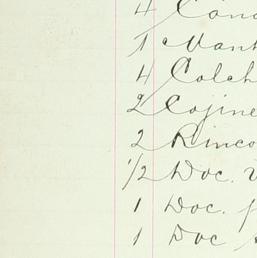 4 Cono
1 Mant
4 Colch
2 Cojine
2 Rinco
1/2 Doc. v
1 Doc. f
1 Doc